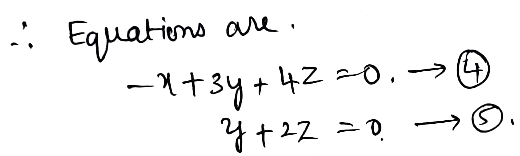 ∴ Equations are.
-x+3y+4z=0. → ④
y+2z=0. → ⑤.